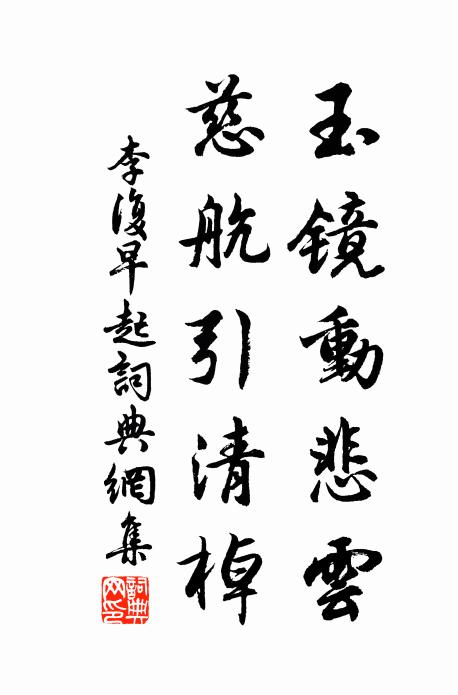 玉鏡動悲雲
慈航引清棹
李復早起詞典網集
詞典網印